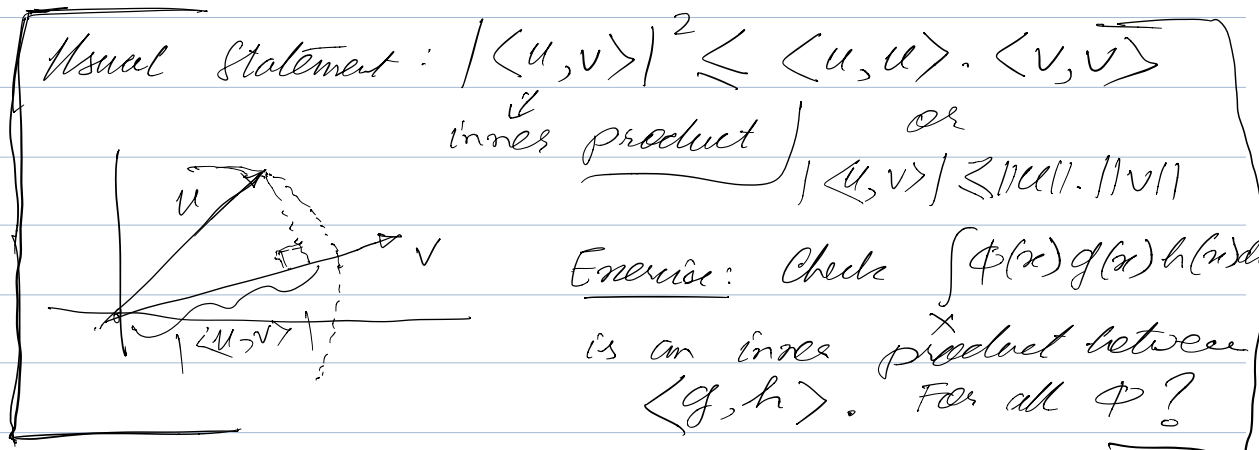 Usual Statement : |<u,v>|² ≤ <u,u>. <v,v>
inner product
or
|<u,v>| ≤ ||u||. ||v||
u
v
|<u,v>|
Exercise: Check ∫ₓ φ(x) g(x) h(x) d
is an inner product between
<g, h>. For all φ?